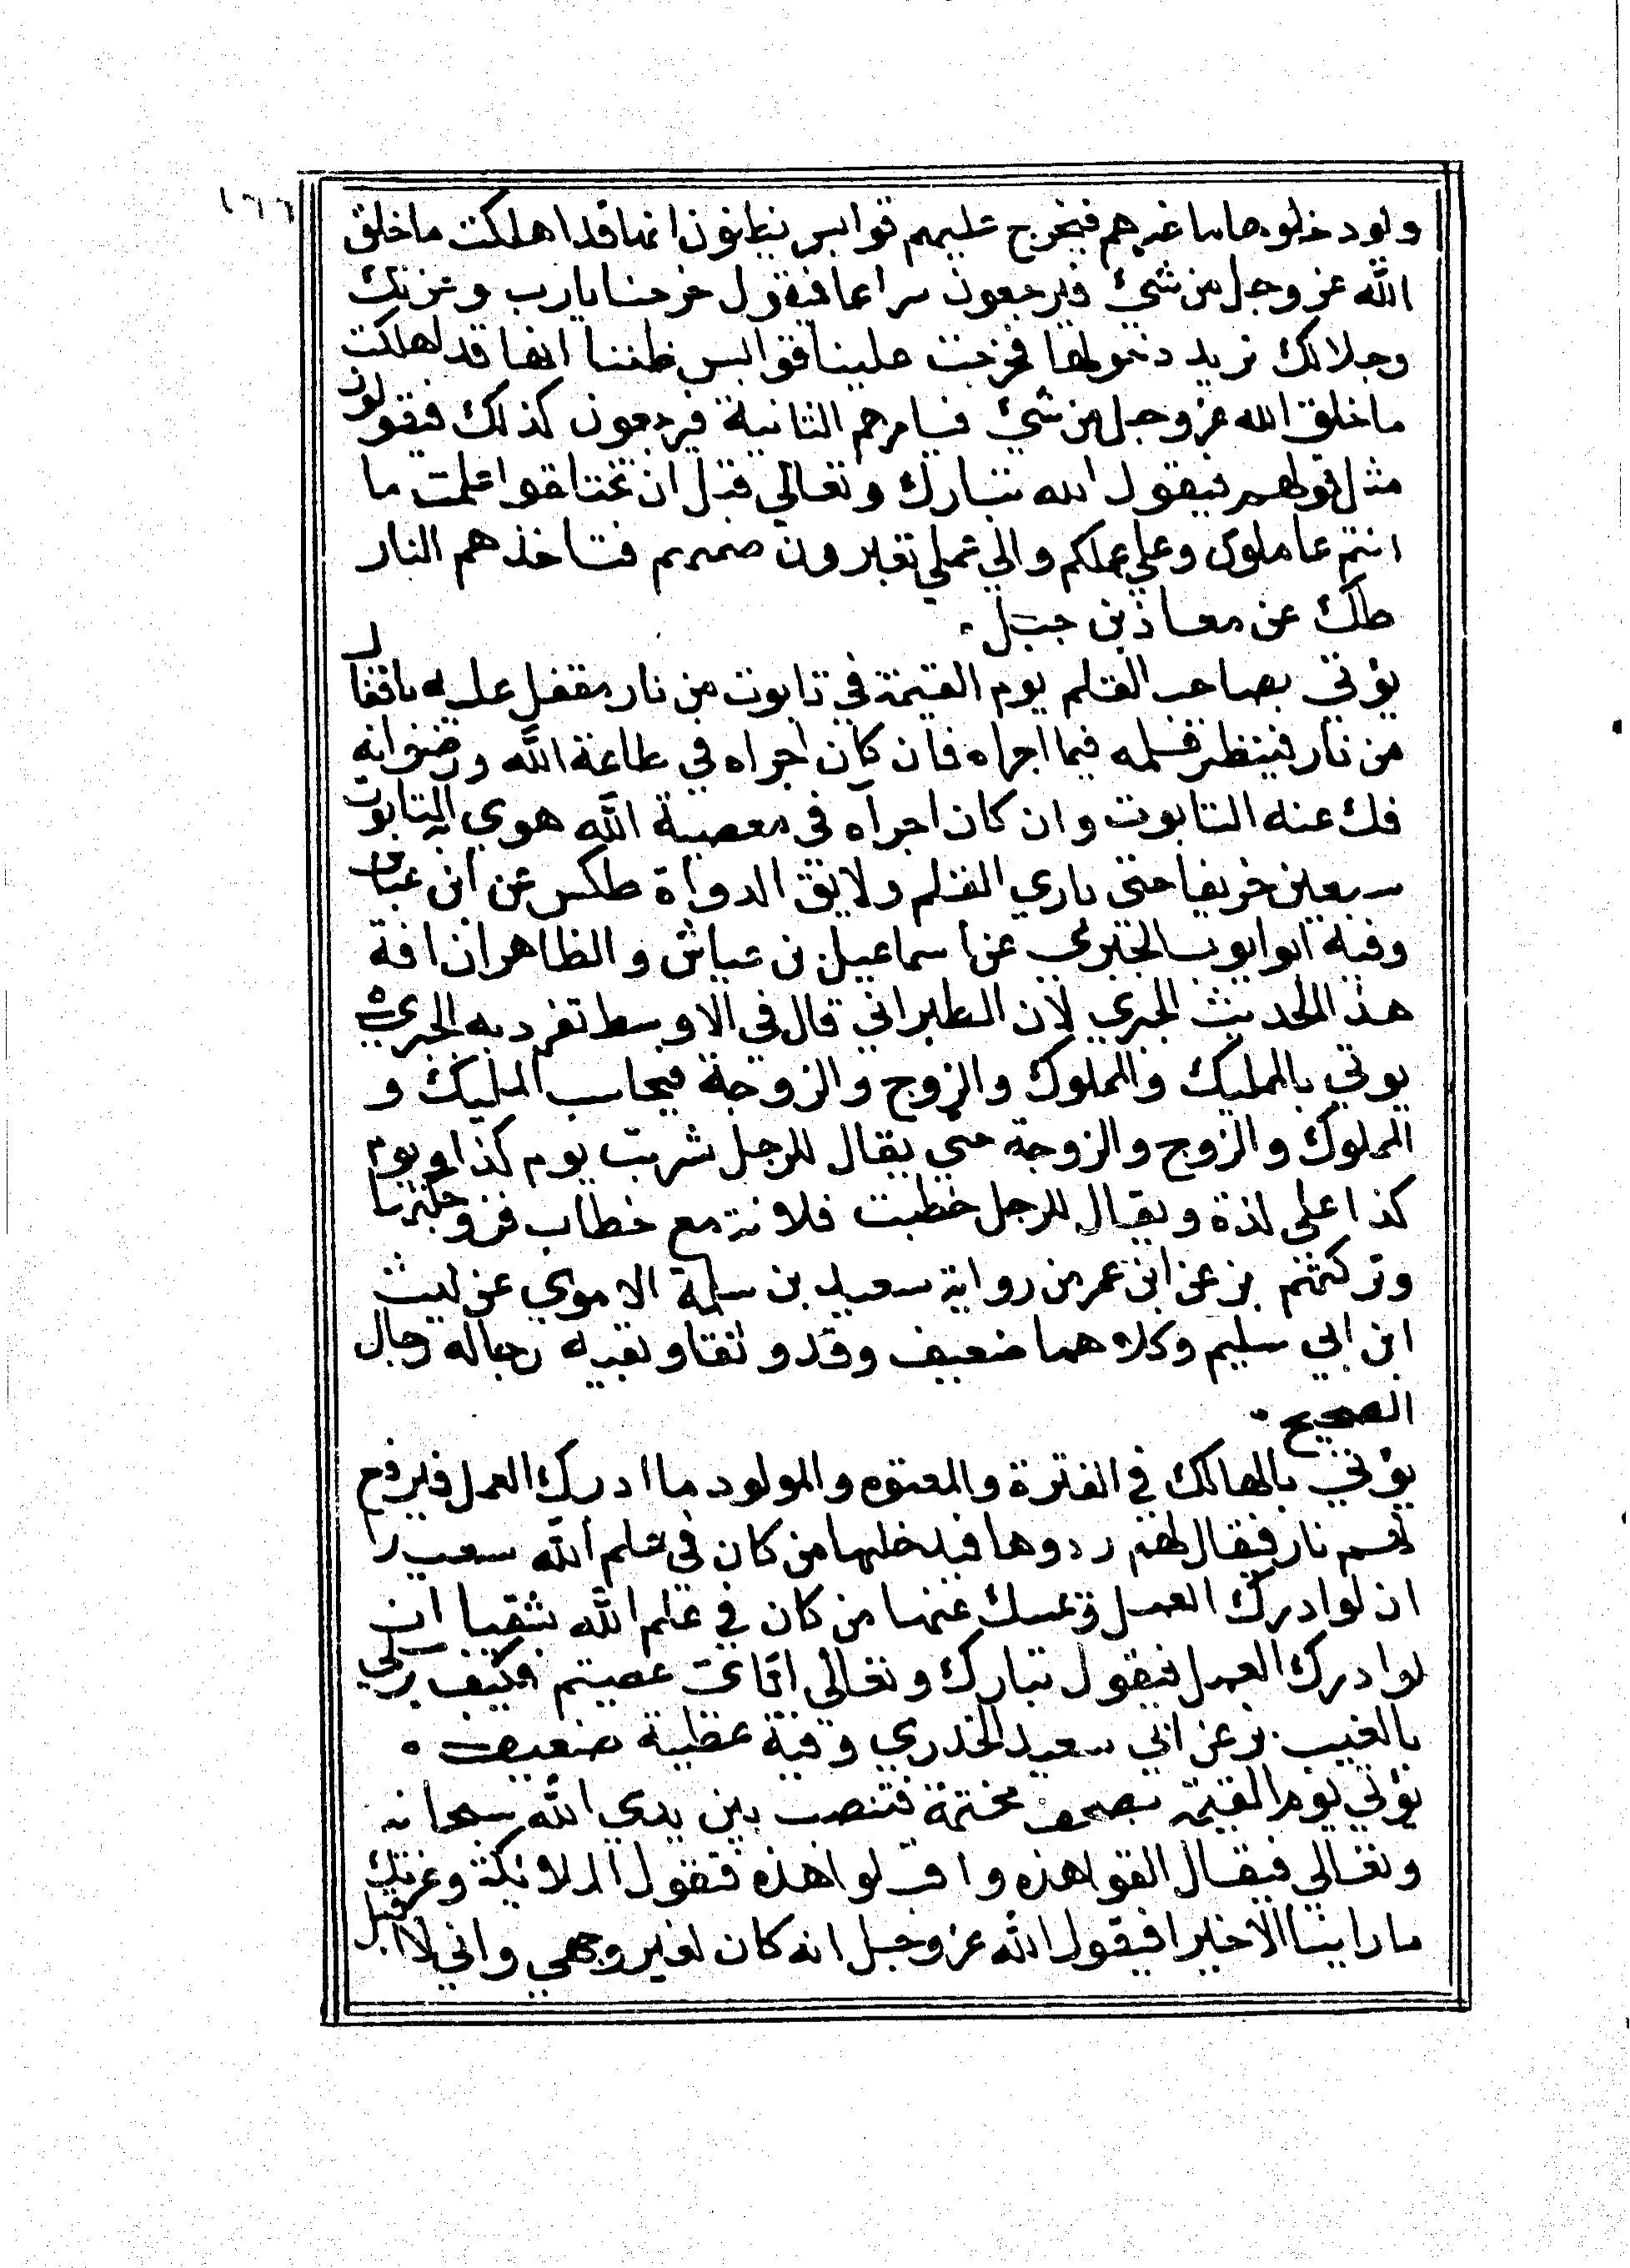 ١٦٦
ولو دخلوها ما ضرهم فيخرج عليهم قوابس يظنون انها قد اهلكت ما خلق
الله عز وجل من شيئ فيرجعون سراعا فيقول خرجنا يا رب وعزتك
وجلالك نريد دخولها فخرجت علينا قوابس ظننا انها قد اهلكت
ما خلق الله عز وجل من شيئ فيامرهم الثانية فيرجعون كذلك فيقولون
مثل قولهم فيقول الله تبارك وتعالي قبل ان تخلقوا علمت ما
انتم عاملون وعلي عملكم والي علمي تصيرون ضميهم فتاخذهم النار
طك عن معاذ بن جبل
يؤتي بصاحب القلم يوم القيمة في تابوت من نار مقفل عليه باقفال
من نار فينظر قلمه فيما اجراه فان كان اجراه في طاعة الله ورضوانه
فك عنه التابوت وان كان اجراه في معصية الله هوي به التابوت
سبعين خريفا حتى باري القلم ولايق الدواة طكس عن ابن عباس
وفيه ابو ايوب الخبري عن اسماعيل بن عياش والظاهر ان افة
هذا الحديث الجيزي لان الطبراني قال في الاوسط تفرد به الجيزي
يوتي بالمليك والمملوك والزوج والزوجة فيحاسب المليك و
المملوك والزوج والزوجة حتي يقال للرجل شربت يوم كذا ويوم
كذا على لذة ويقال للرجل خطبت فلانة مع خطاب فزوجتكها
وتركتهم بز عن ابن عمر من رواية سعيد بن سلمة الاموي عن ليث
ابن ابي سليم وكلاهما ضعيف وقد وثقا وبقية رجاله رجال
الصحيح
يؤتي بالهالك في الفترة والمعتوه والمولود ما ادرك العمل فيرفع
لهم نار فيقال لهم ردوها فيدخلها من كان في علم الله سعيدا
ان لو ادرك العمل ويمسك عنها من كان في علم الله شقيا ان
لو ادرك العمل فيقول تبارك وتعالي اياي عصيتم فكيف برسلي
بالغيب بز عن ابي سعيد الخدري وفية عطية ضعيف
يؤتي يوم القيمة بصحف مختمة فتنصب بين يدي الله سبحانه
وتعالي فيقال القوا هذه واقبلوا هذه فتقول الملائكة وعزتك
ما راينا الا خيرا فيقول الله عز وجل انه كان لغير وجهي واني لا اقبل